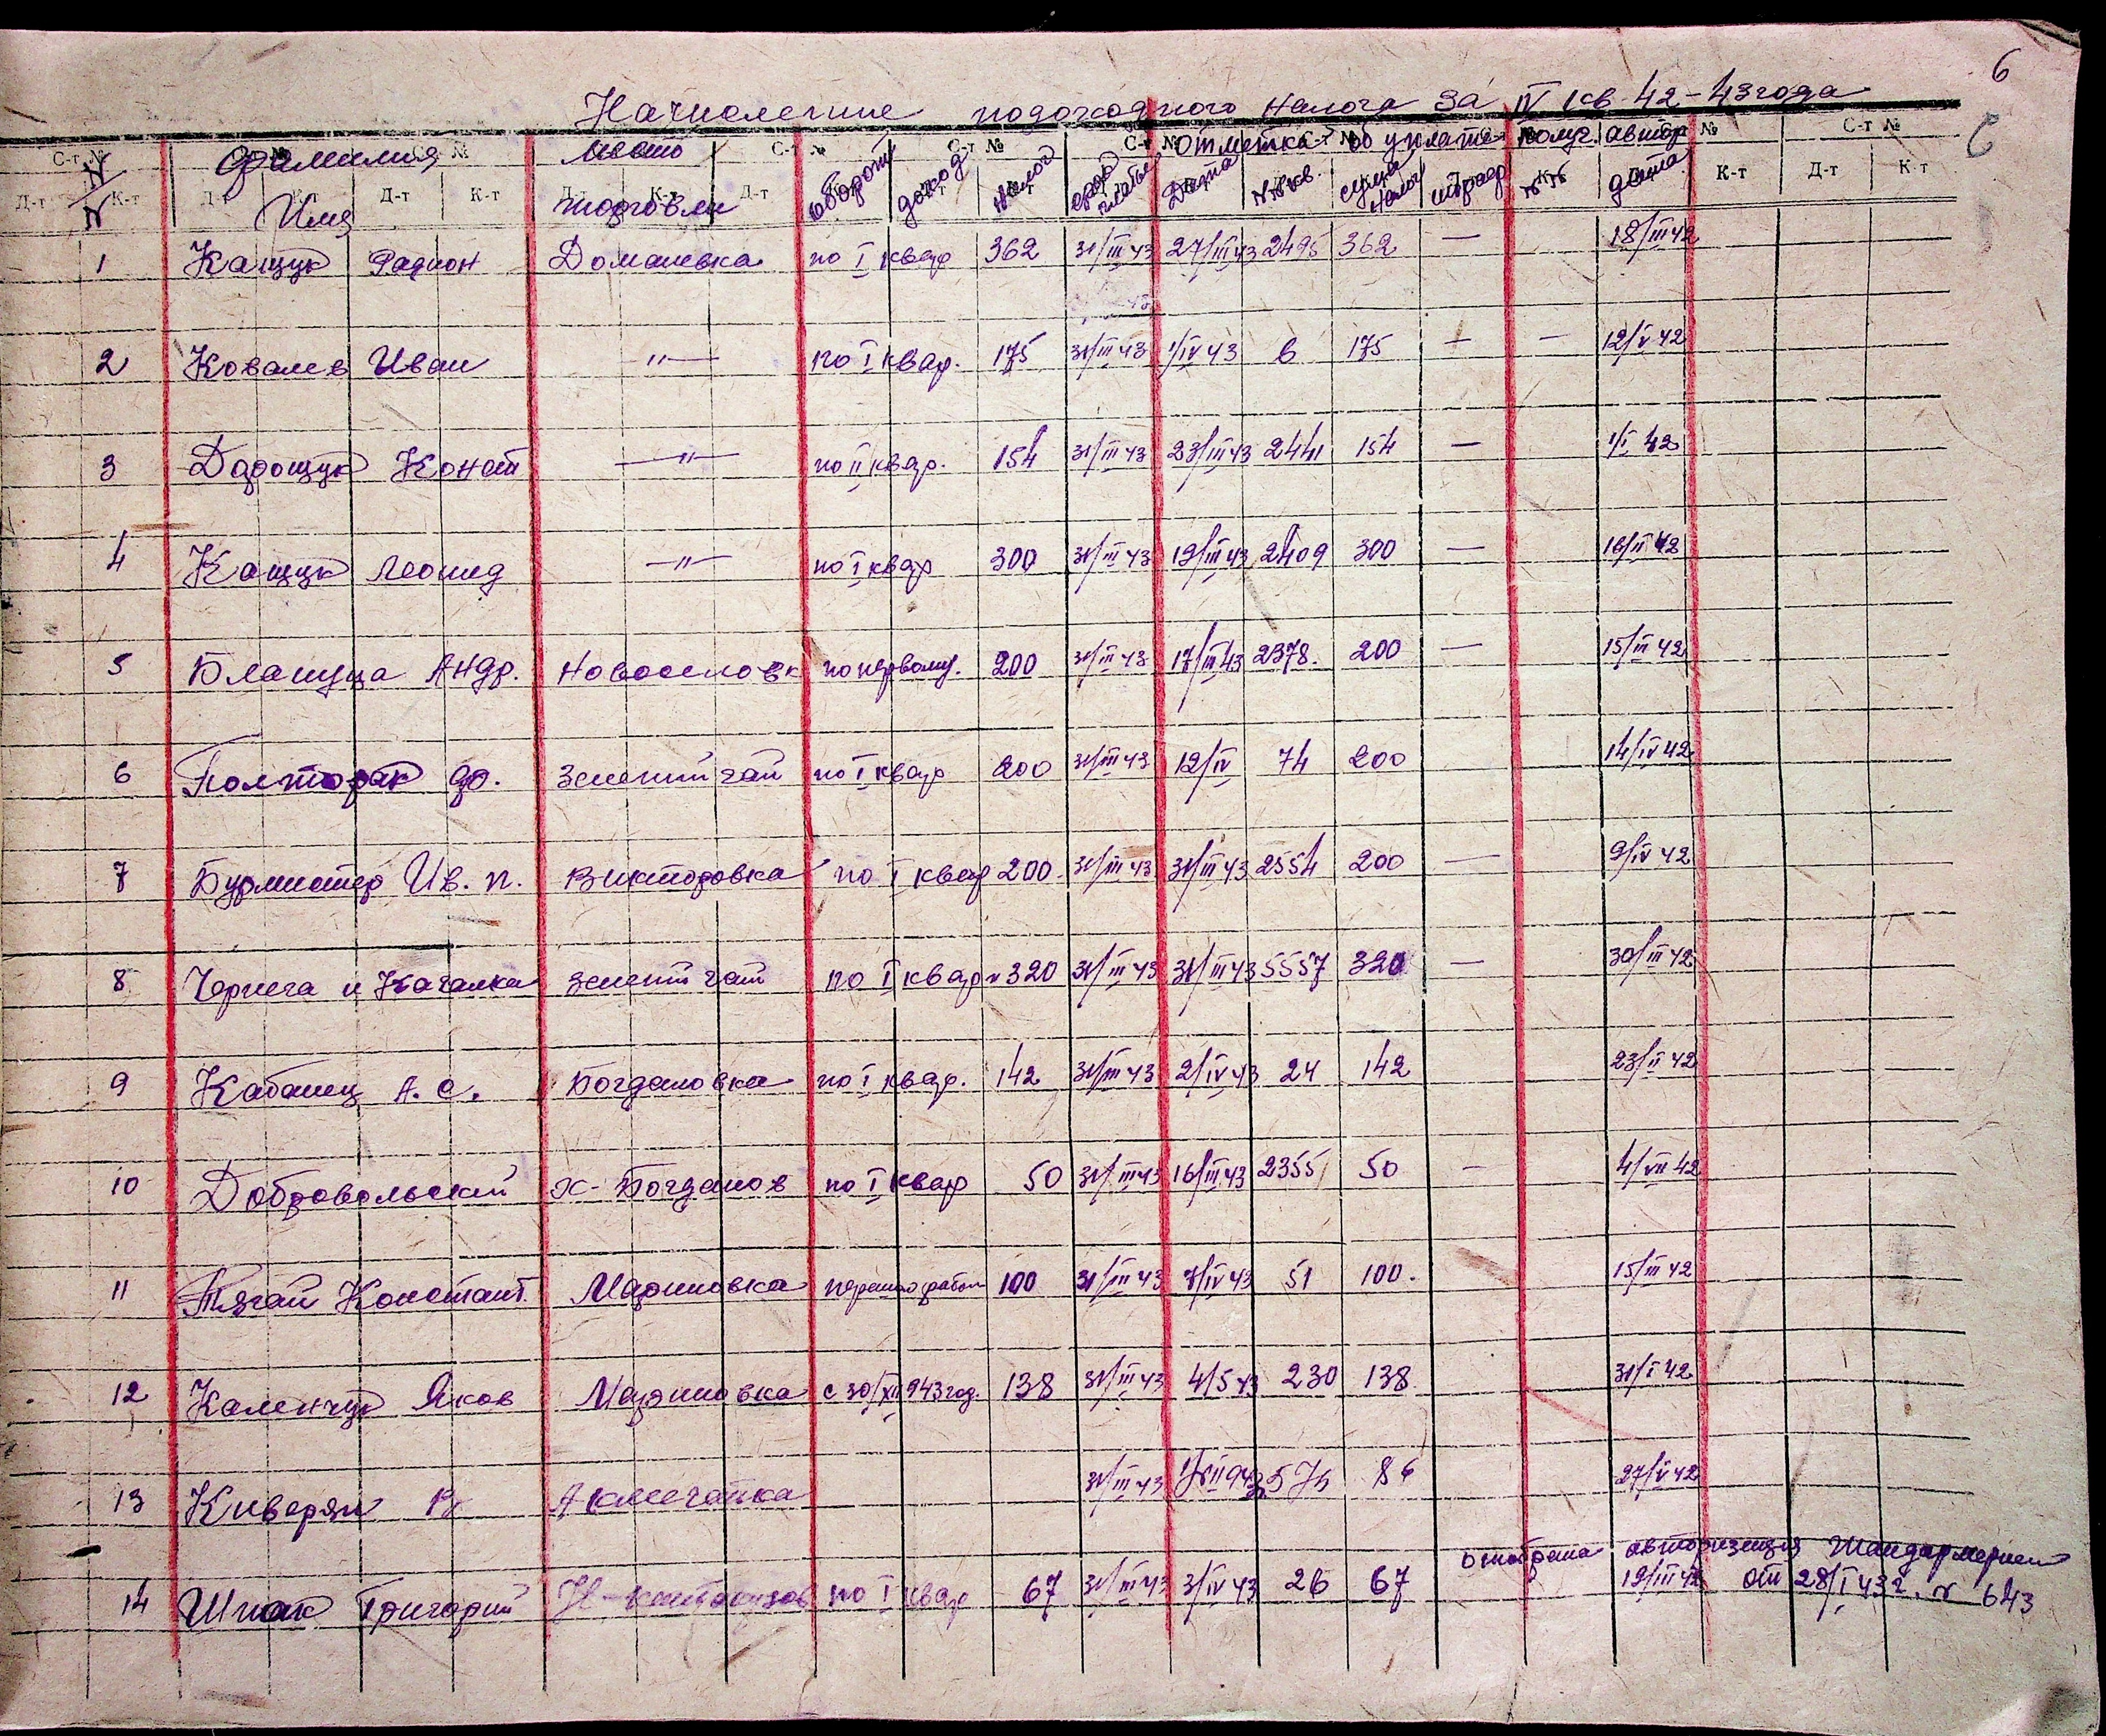 6
Начисление подоходного налога за IV кв 42-43 года
С-т № С-т № С-т № С-т № С-т № С-т № С-т № С-т № С-т № С-т №
N/N Фамилия Имя место торговли оборот доход налог срок платеж Отметка об уплате Дата №№ кв. сумма налог штраф получ. автор №№ дата
Д-т К-т Д-т К-т Д-т К-т Д-т К-т Д-т К-т Д-т К-т
1 Кащук Радион Доманевка по I квар 362 31/III 43 27/III 43 2495 362 — 18/III 42
2 Ковалев Иван —"— по I квар. 175 31/III 43 1/IV 43 6 175 — — 12/V 42
3 Дарощук Конст —"— по II квар. 154 31/III 43 23/III 43 2441 154 — 1/I 42
4 Кащук Леонид —"— по I квар 300 31/III 43 19/III 43 2409 300 — 16/II 42
5 Блащуца Андр. Новоселовк по первому. 200 31/III 43 17/III 43 2378. 200 — 15/III 42
6 Полторак Ф. Зелений гай по I квар 200 31/III 43 12/IV 74 200 14/IV 42
7 Бурмистер Ив. п. Викторовка по I квар 200. 31/III 43 31/III 43 2554 200 — 9/IV 42
8 Чернега и Качалка Зелений гай по I квар 320 31/III 43 31/III 43 5557 320 — 30/III 42
9 Кабанец А. С. Богдановка по I квар. 142 31/III 43 2/IV 43 24 142 23/II 42
10 Добровольский х-Богданов по I квар 50 31/III 43 16/III 43 2355 50 — 4/VII 42
11 Тягай Констант. Мариновка 100 31/III 43 7/IV 43 51 100. 15/III 42
12 Каленчук Яков Мариновка с 30/XII 943 год. 138 31/III 43 4/5 43 230 138 31/I 42
13 Киверян Акмечатка 31/III 43 86 27/V 42
отобрана авторизация Жандармерией
14 Шпак Григорий по I квар 67 31/III 43 3/IV 43 26 67 19/III 42 от 28/I 43 г. N 643